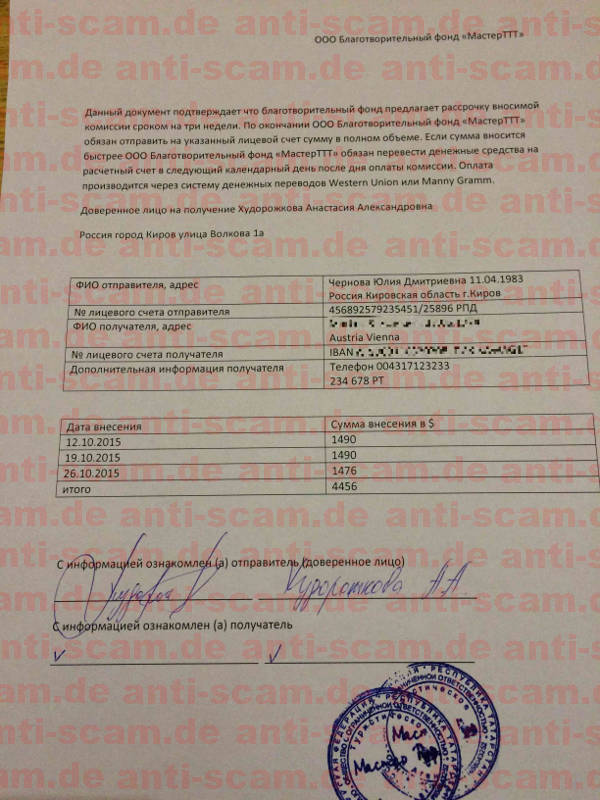 ООО Благотворительный фонд «МастерТТТ»
Данный документ подтверждает что благотворительный фонд предлагает рассрочку вносимой
комиссии сроком на три недели. По окончании ООО Благотворительный фонд «МастерТТТ»
обязан отправить на указанный лицевой счет сумму в полном объеме. Если сумма вносится
быстрее ООО Благотворительный фонд «МастерТТТ» обязан перевести денежные средства на
расчетный счет в следующий календарный день после дня оплаты комиссии. Оплата
производится через систему денежных переводов Western Union или Manny Gramm.
Доверенное лицо на получение Худорожкова Анастасия Александровна
Россия город Киров улица Волкова 1а
ФИО отправителя, адрес Чернова Юлия Дмитриевна 11.04.1983
Россия Кировская область г.Киров
№ лицевого счета отправителя 456892579235451/25896 РПД
ФИО получателя, адрес
Austria Vienna
№ лицевого счета получателя IBAN
Дополнительная информация получателя Телефон 004317123233
234 678 РТ
Дата внесения Сумма внесения в $
12.10.2015 1490
19.10.2015 1490
26.10.2015 1476
итого 4456
С информацией ознакомлен (а) отправитель (доверенное лицо)
С информацией ознакомлен (а) получатель
anti-scam.de